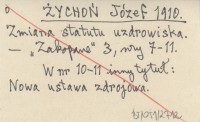 ŻYCHOŃ Józef 1910.
Zmiana statutu uzdrowiska.
— „Zakopane" 3, nry 7-11.
W nr 10-11 inny tytuł:
Nowa ustawa zdrojowa.